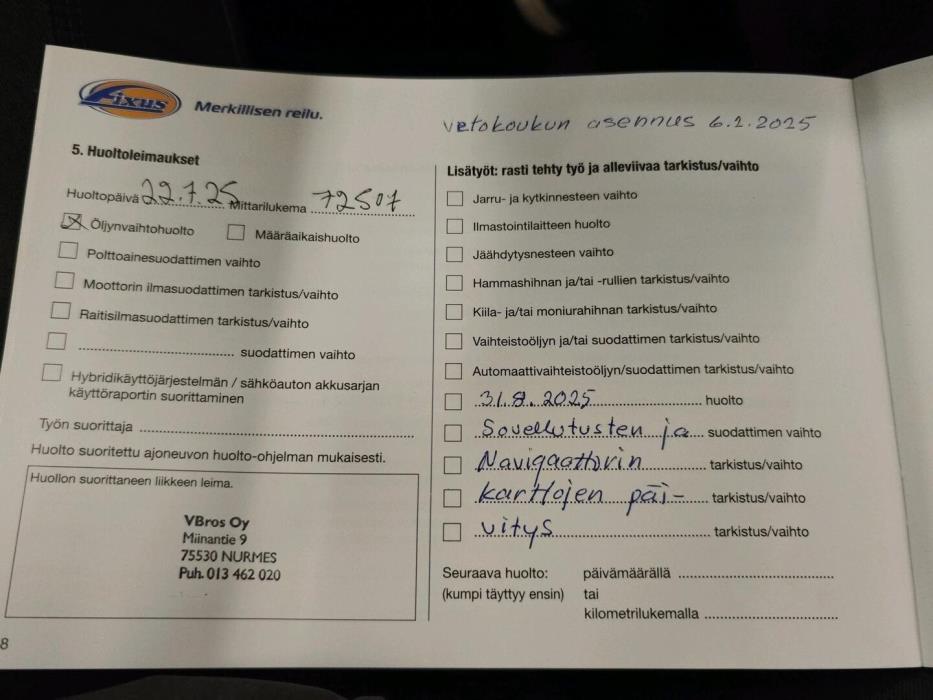 Fixus Merkillisen reilu.
vetokoukun asennus 6.2.2025
5. Huoltoleimaukset
Huoltopäivä 22.7.25 Mittarilukema 72507
Öljynvaihtohuolto Määräaikaishuolto
Polttoainesuodattimen vaihto
Moottorin ilmasuodattimen tarkistus/vaihto
Raitisilmasuodattimen tarkistus/vaihto
suodattimen vaihto
Hybridikäyttöjärjestelmän / sähköauton akkusarjan
käyttöraportin suorittaminen
Työn suorittaja
Huolto suoritettu ajoneuvon huolto-ohjelman mukaisesti.
Huollon suorittaneen liikkeen leima.
VBros Oy
Miinantie 9
75530 NURMES
Puh. 013 462 020
8
Lisätyöt: rasti tehty työ ja alleviivaa tarkistus/vaihto
Jarru- ja kytkinnesteen vaihto
Ilmastointilaitteen huolto
Jäähdytysnesteen vaihto
Hammashihnan ja/tai -rullien tarkistus/vaihto
Kiila- ja/tai moniurahihnan tarkistus/vaihto
Vaihteistoöljyn ja/tai suodattimen tarkistus/vaihto
Automaattivaihteistoöljyn/suodattimen tarkistus/vaihto
31.8.2025 huolto
Sovellutusten ja suodattimen vaihto
Navigaattorin tarkistus/vaihto
karttojen päi- tarkistus/vaihto
vitys tarkistus/vaihto
Seuraava huolto: päivämäärällä
(kumpi täyttyy ensin) tai
kilometrilukemalla